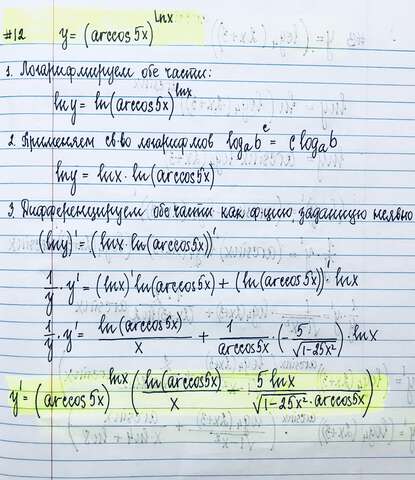 #12 y = (arccos 5x)^lnx
1. Логарифмируем обе части:
ln y = ln(arccos 5x)^lnx
2. Применяем св-во логарифмов log_a b^c = c log_a b
ln y = lnx · ln(arccos 5x)
3. Дифференцируем обе части как ф-цию, заданную неявно
(ln y)' = (lnx · ln(arccos 5x))'
1/y · y' = (lnx)' ln(arccos 5x) + (ln(arccos 5x))' · lnx
1/y · y' = ln(arccos 5x)/x + 1/arccos 5x · (-5/√(1-25x²)) · lnx
y' = (arccos 5x)^lnx (ln(arccos 5x)/x - 5 lnx/(√(1-25x²) · arccos 5x))